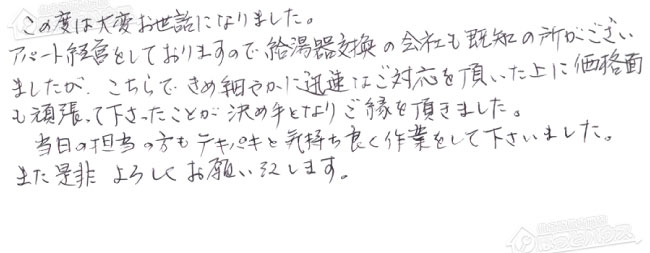 この度は大変お世話になりました。
アパート経営をしておりますので給湯器交換の会社も既知の所がござい
ましたが、こちらできめ細やかに迅速なご対応を頂いた上に価格面
も頑張って下さったことが決め手となりご縁を頂きました。
当日の担当の方もテキパキと気持ち良く作業をして下さいました。
また是非よろしくお願い致します。